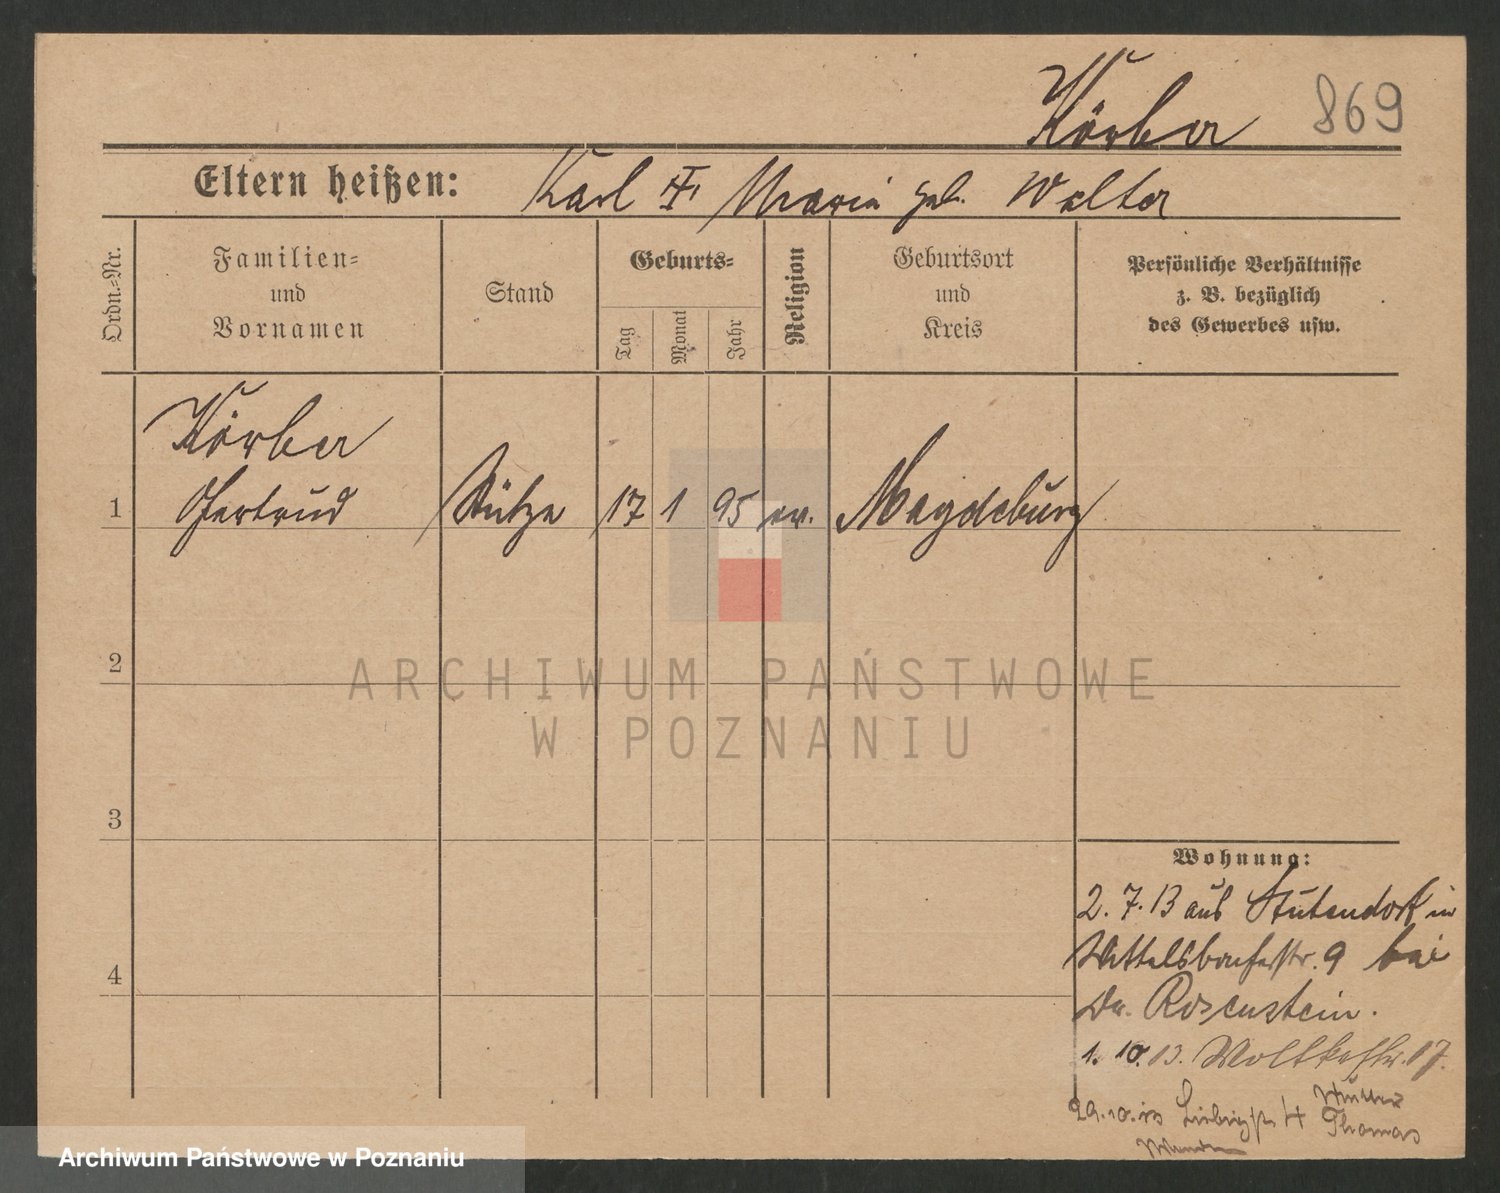 Körber 869
Eltern heißen: Karl Maria geb. Walter
Ordn.=Nr.
Familien=
und
Vornamen
Stand
Geburts=
Tag
Monat
Jahr
Religion
Geburtsort
und
Kreis
Persönliche Verhältnisse
z. B. bezüglich
des Gewerbes usw.
Körber
1 Gertrud Stütze 17 1 95 ev. Magdeburg
2
ARCHIWUM PAŃSTWOWE
W POZNANIU
3
4
Wohnung:
2. 7. 13 aus Stutendorf in
Wittelsbacherstr. 9 bei
Dr. Rosenstein.
1. 10. 13. Moltkestr. 17.
29.10.13 Liebigstr. Thomas
Archiwum Państwowe w Poznaniu